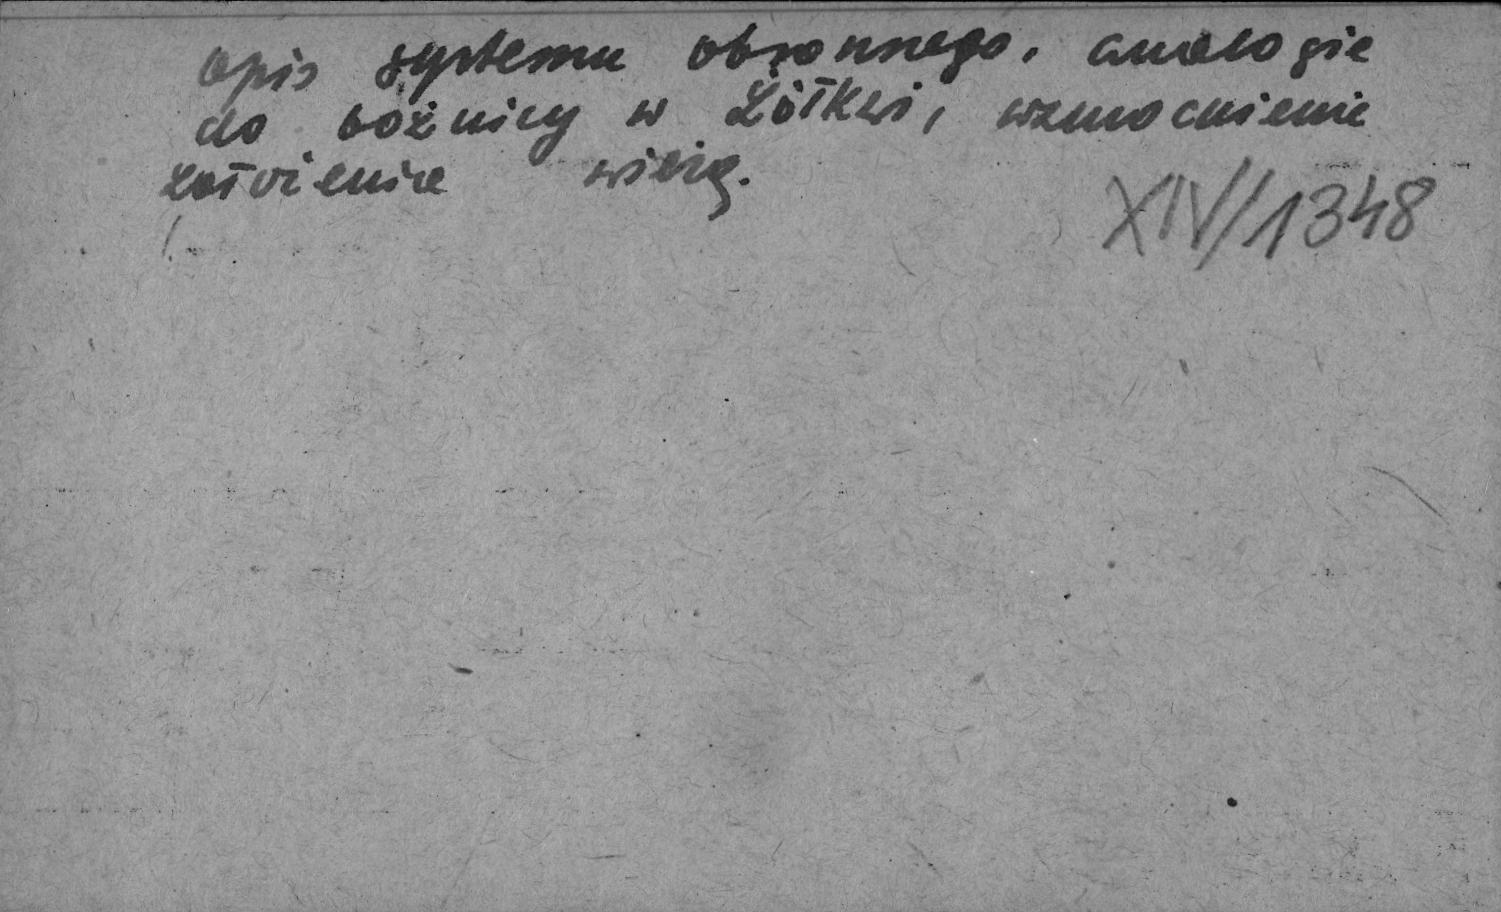 opis systemu obronnego, analogie
do bóżnicy w Żółkwi, wzmocnienie
wieżą.
XIV/1348